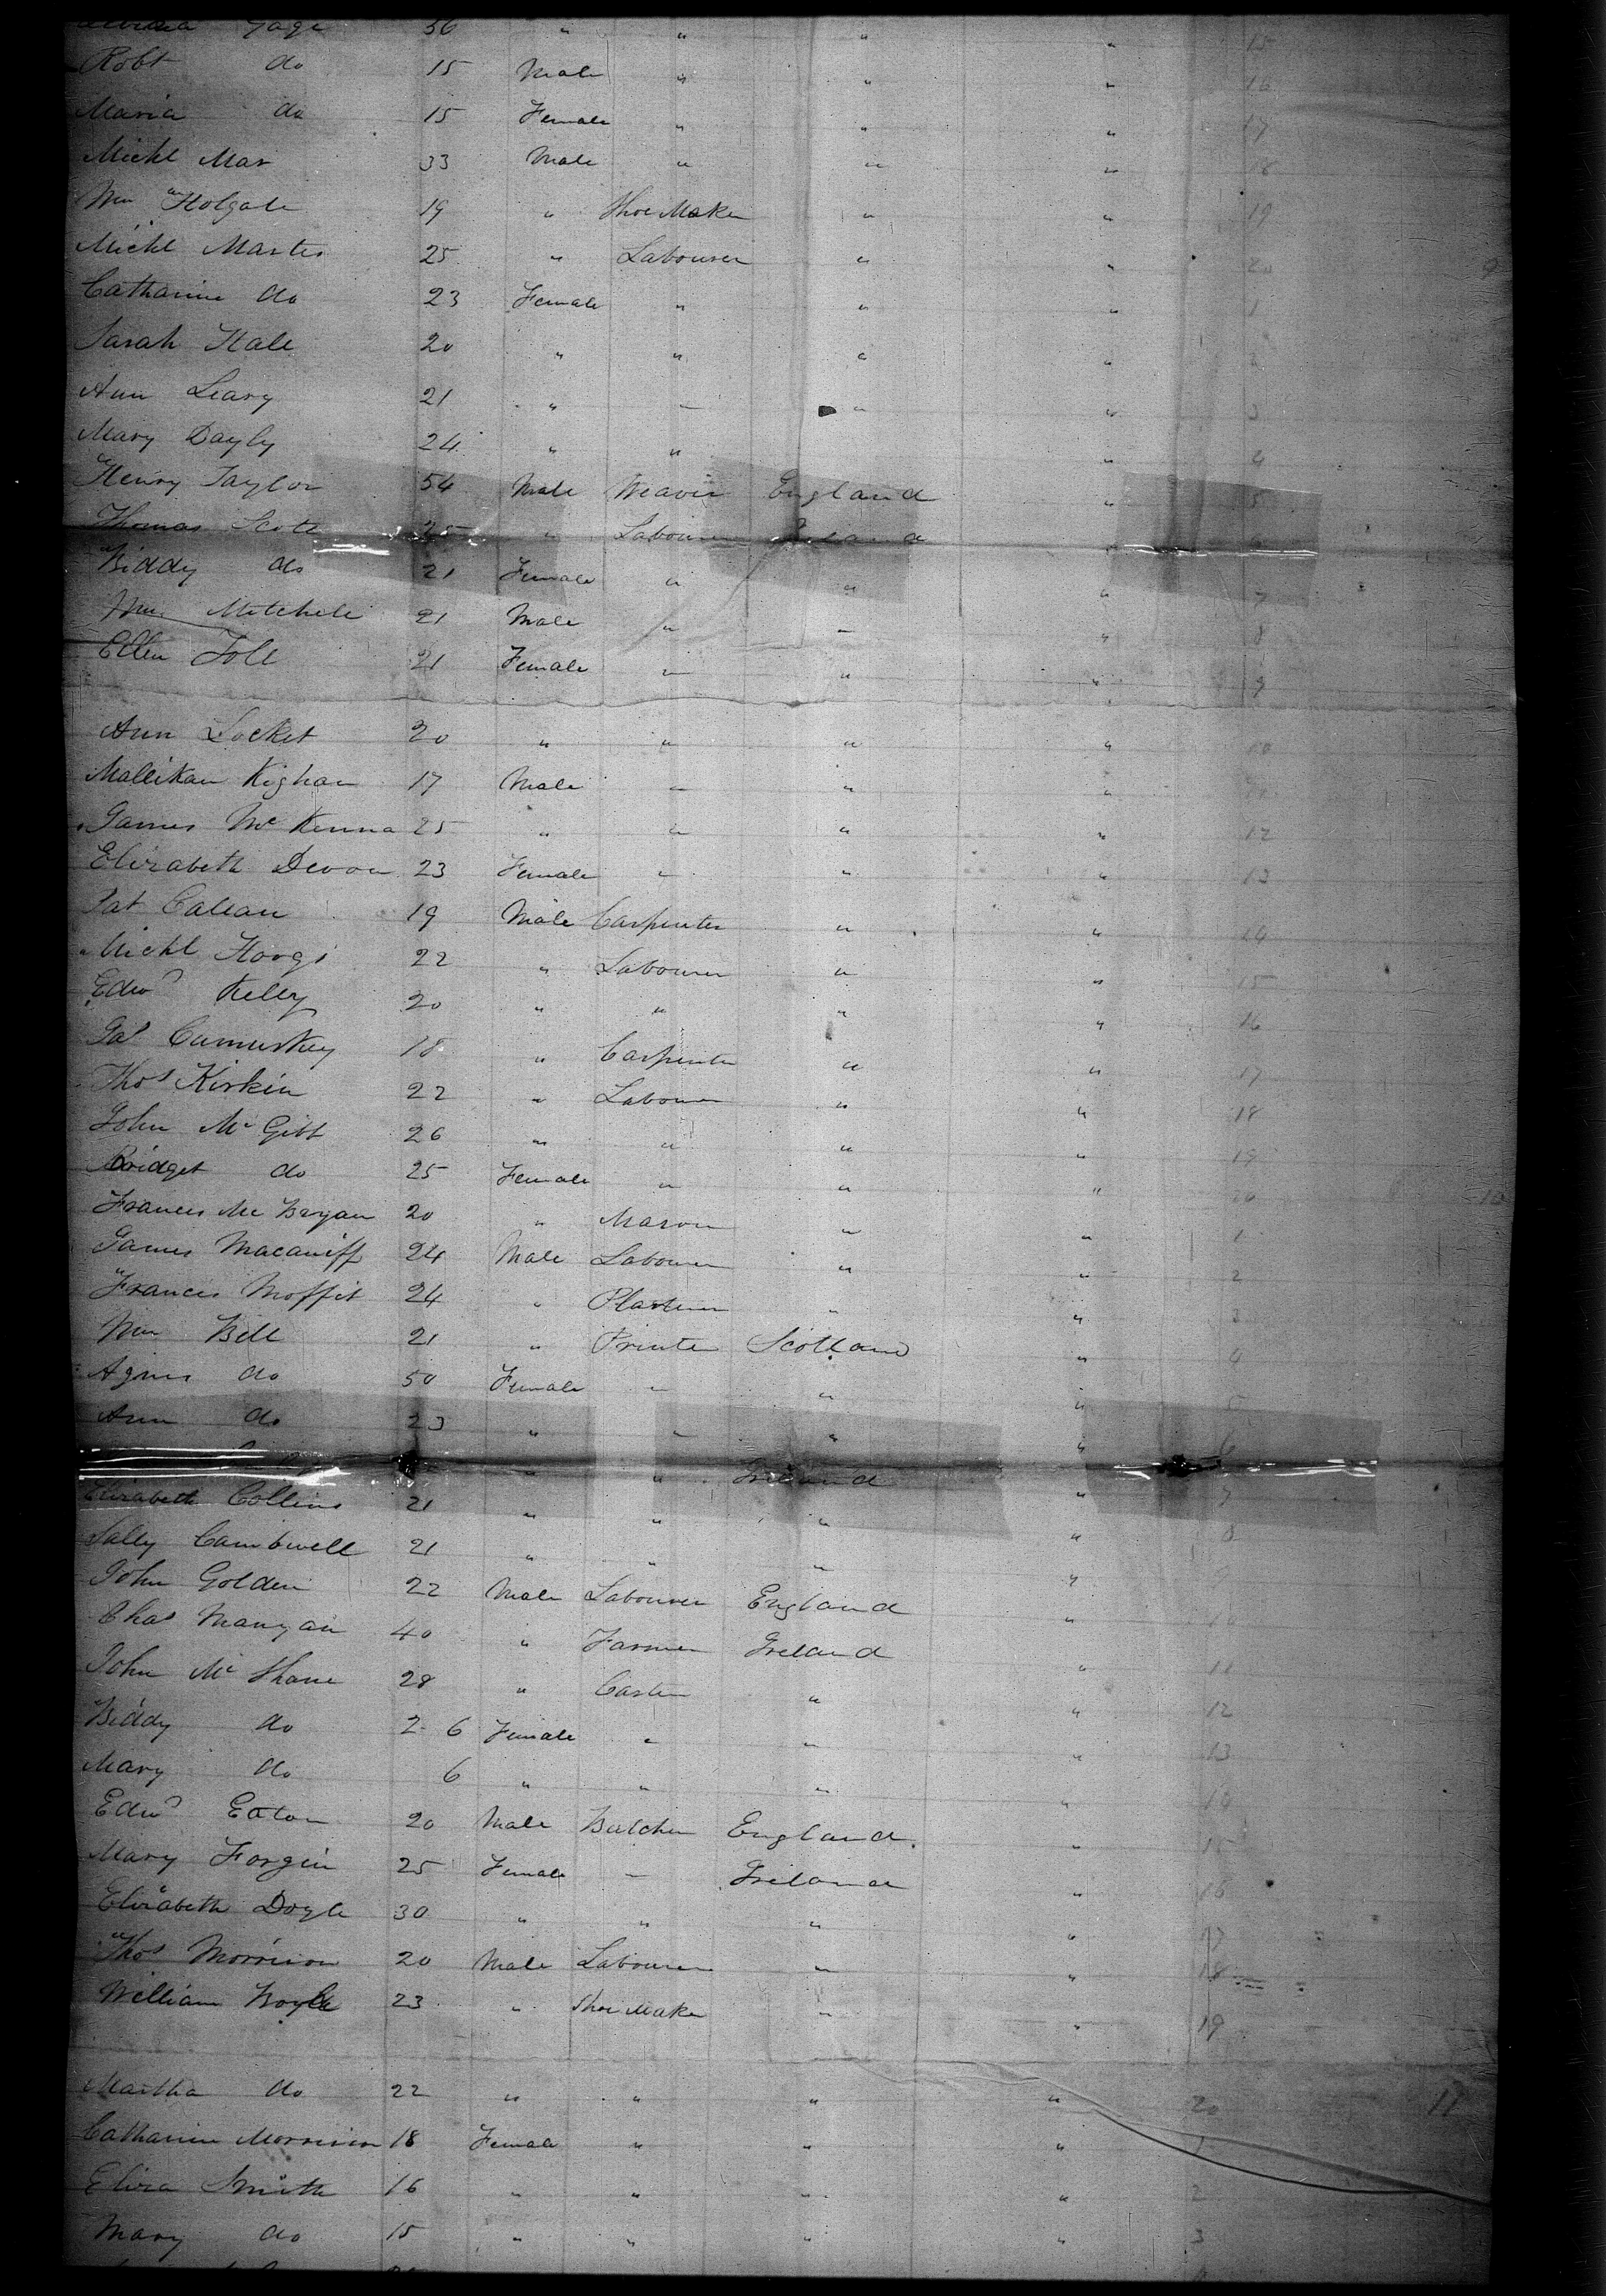 Gage 36 " " " " 15
Robt do 15 Male " " " 16
Maria do 15 Female " " " 17
Michl Mar 33 Male " " " 18
Wm Holgate 19 " Shoe Maker " " 19
Michl Marter 25 " Labourer " " 20 9
Catharine do 23 Female " " " 1
Sarah Hale 20 " " " " 2
Ann Leary 21 " " " " 3
Mary Dayly 24 " " " 4
Henry Taylor 54 Male Weaver England " 5
Thomas Scott 25 " Labourer Ireland " 6
Biddy do 21 Female " " " 7
Wm Mitchell 21 Male " " " 8
Ellen Toll 21 Female " " " 9
Ann Locket 20 " " " " 10
Kighan 17 Male " " " 11
James Mc Kenna 25 " " " " 12
Elizabeth Devon 23 Female " " " 13
Pat Callan 19 Male Carpenter " " 14
Michl 22 " Labourer " " 15
Edwd Kelly 20 " " " " 16
Cumuskey 18 " Carpenter " " 17
Thos Kirkin 22 " Labourer " " 18
John Mc Gibb 26 " " " " 19
Bridget do 25 Female " " " 20 10
Frances Mc Bryan 20 " Mason " " 1
James Macaniff 24 Male Labourer " " 2
Francis Moffit 24 " Plasterer " " 3
Wm Bell 21 " Printer Scotland " 4
Agnes do 50 Female " " " 5
Ann do 23 " " " " 6
" " Ireland " 7
Elizabeth Collins 21 " " " " 8
Sally Cambwell 21 " " " " 9
John Golden 22 Male Labourer England " 10
Chas Mangan 40 " Farmer Ireland " 11
John Mc Shane 28 " Carter " " 12
Biddy do 2 6 Female " " " 13
Mary do 6 " " " " 14
Edwd Eaton 20 Male Butcher England " 15
Mary Forgin 25 Female " Ireland " 16
Elizabeth Doyle 30 " " " " 17
Thos Morrison 20 Male Labourer " " 18
William Boyle 23 " Shoe Maker " " 19
Martha do 22 " " " " 20 11
Catharine Morrison 18 Female " " " 1
Eliza Smith 16 " " " " 2
Mary do 15 " " " " 3